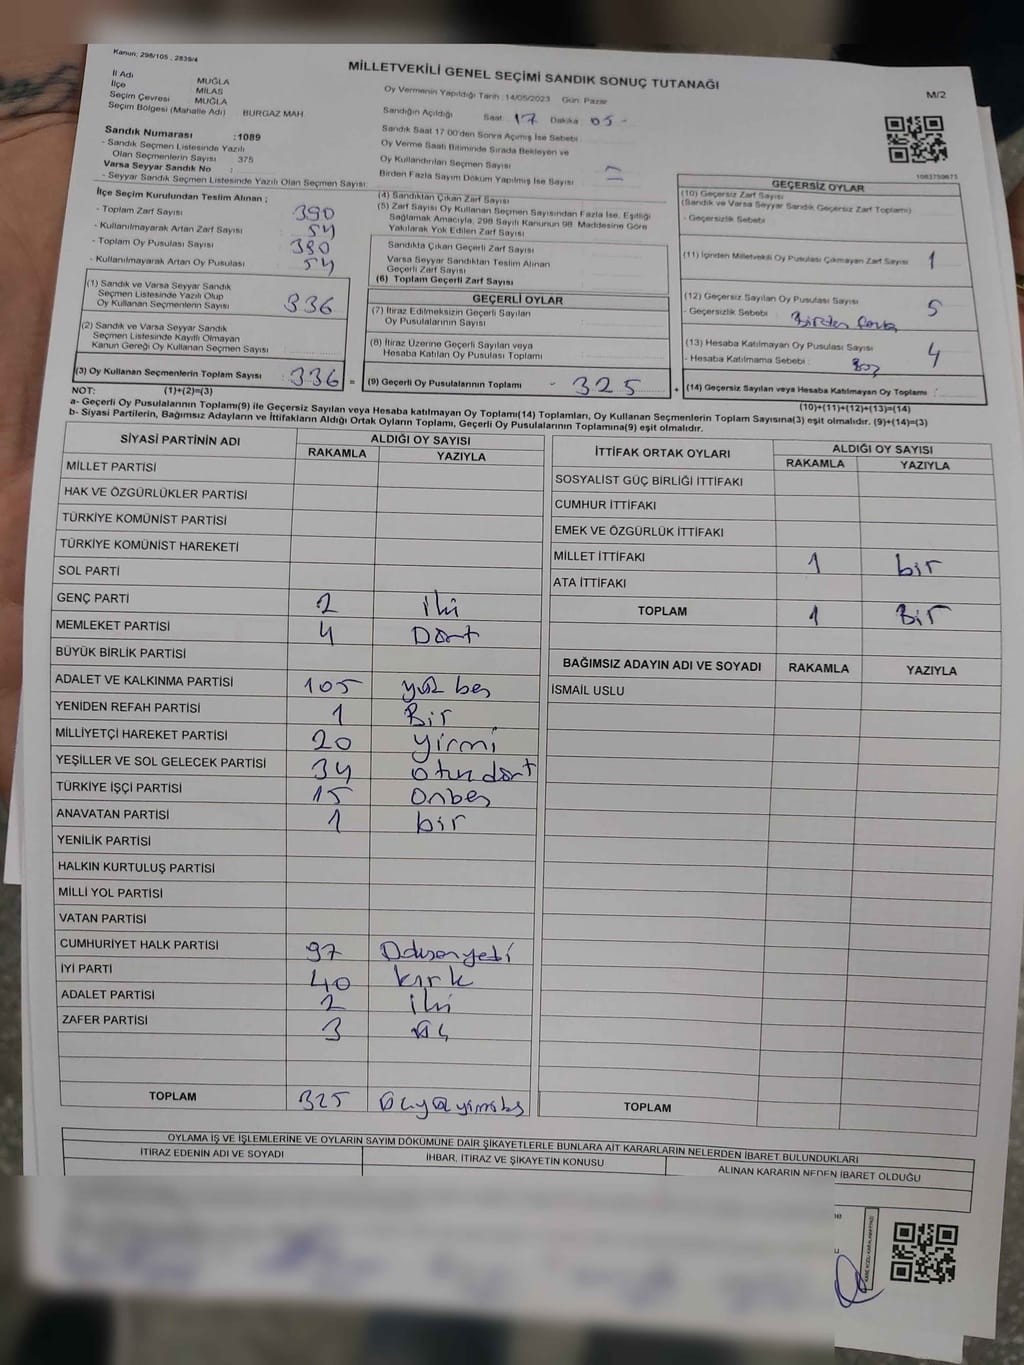 Kanun; 298/105 , 2839/4
MİLLETVEKİLİ GENEL SEÇİMİ SANDIK SONUÇ TUTANAĞI
M/2
İl Adı MUĞLA
İlçe MİLAS
Seçim Çevresi MUĞLA
Seçim Bölgesi (Mahalle Adı) BURGAZ MAH.
Sandık Numarası :1089
- Sandık Seçmen Listesinde Yazılı
Olan Seçmenlerin Sayısı 375
Varsa Seyyar Sandık No :
- Seyyar Sandık Seçmen Listesinde Yazılı Olan Seçmen Sayısı:
Oy Vermenin Yapıldığı Tarih :14/05/2023 Gün: Pazar
Sandığın Açıldığı Saat 17 Dakika 05-
Sandık Saat 17:00'den Sonra Açımış İse Sebebi
Oy Verme Saati Bitiminde Sırada Bekleyen ve
Oy Kullandırılan Seçmen Sayısı
Birden Fazla Sayım Döküm Yapılmış İse Sayısı
1083759673
İlçe Seçim Kurulundan Teslim Alınan ;
- Toplam Zarf Sayısı 390
- Kullanılmayarak Artan Zarf Sayısı 54
- Toplam Oy Pusulası Sayısı 390
- Kullanılmayarak Artan Oy Pusulası 54
(1) Sandık ve Varsa Seyyar Sandık
Seçmen Listesinde Yazılı Olup
Oy Kullanan Seçmenlerin Sayısı 336
(2) Sandık ve Varsa Seyyar Sandık
Seçmen Listesinde Kayıtlı Olmayan
Kanun Gereği Oy Kullanan Seçmen Sayısı
(3) Oy Kullanan Seçmenlerin Toplam Sayısı : 336 =
(4) Sandıktan Çıkan Zarf Sayısı
(5) Zarf Sayısı Oy Kullanan Seçmen Sayısından Fazla İse, Eşitliği
Sağlamak Amacıyla, 298 Sayılı Kanunun 98. Maddesine Göre
Yakılarak Yok Edilen Zarf Sayısı
Sandıkta Çıkan Geçerli Zarf Sayısı
Varsa Seyyar Sandıktan Teslim Alınan
Geçerli Zarf Sayısı
(6) Toplam Geçerli Zarf Sayısı
GEÇERLİ OYLAR
(7) İtiraz Edilmeksizin Geçerli Sayılan
Oy Pusulalarının Sayısı
(8) İtiraz Üzerine Geçerli Sayılan veya
Hesaba Katılan Oy Pusulası Toplamı
(9) Geçerli Oy Pusulalarının Toplamı - 325 +
GEÇERSİZ OYLAR
(10) Geçersiz Zarf Sayısı
(Sandık ve Varsa Seyyar Sandık Geçersiz Zarf Toplamı)
- Geçersizlik Sebebi
(11) İçinden Milletvekili Oy Pusulası Çıkmayan Zarf Sayısı 1
(12) Geçersiz Sayılan Oy Pusulası Sayısı 5
- Geçersizlik Sebebi Birden fazla
(13) Hesaba Katılmayan Oy Pusulası Sayısı 4
- Hesaba Katılmama Sebebi : Boş
(14) Geçersiz Sayılan veya Hesaba Katılmayan Oy Toplamı :
NOT: (1)+(2)=(3)
(10)+(11)+(12)+(13)=(14)
a- Geçerli Oy Pusulalarının Toplamı(9) ile Geçersiz Sayılan veya Hesaba katılmayan Oy Toplamı(14) Toplamları, Oy Kullanan Seçmenlerin Toplam Sayısına(3) eşit olmalıdır. (9)+(14)=(3)
b- Siyasi Partilerin, Bağımsız Adayların ve İttifakların Aldığı Ortak Oyların Toplamı, Geçerli Oy Pusulalarının Toplamına(9) eşit olmalıdır.
SİYASİ PARTİNİN ADI ALDIĞI OY SAYISI
RAKAMLA YAZIYLA
MİLLET PARTİSİ
HAK VE ÖZGÜRLÜKLER PARTİSİ
TÜRKİYE KOMÜNİST PARTİSİ
TÜRKİYE KOMÜNİST HAREKETİ
SOL PARTİ
GENÇ PARTİ 2 iki
MEMLEKET PARTİSİ 4 Dört
BÜYÜK BİRLİK PARTİSİ
ADALET VE KALKINMA PARTİSİ 105 yüz beş
YENİDEN REFAH PARTİSİ 1 Bir
MİLLİYETÇİ HAREKET PARTİSİ 20 yirmi
YEŞİLLER VE SOL GELECEK PARTİSİ 34 otuz dört
TÜRKİYE İŞÇİ PARTİSİ 15 Onbeş
ANAVATAN PARTİSİ 1 bir
YENİLİK PARTİSİ
HALKIN KURTULUŞ PARTİSİ
MİLLİ YOL PARTİSİ
VATAN PARTİSİ
CUMHURİYET HALK PARTİSİ 97 Doksanyedi
İYİ PARTİ 40 kırk
ADALET PARTİSİ 2 iki
ZAFER PARTİSİ 3 üç
TOPLAM 325 üçyüzyirmibeş
İTTİFAK ORTAK OYLARI ALDIĞI OY SAYISI
RAKAMLA YAZIYLA
SOSYALİST GÜÇ BİRLİĞİ İTTİFAKI
CUMHUR İTTİFAKI
EMEK VE ÖZGÜRLÜK İTTİFAKI
MİLLET İTTİFAKI 1 bir
ATA İTTİFAKI
TOPLAM 1 Bir
BAĞIMSIZ ADAYIN ADI VE SOYADI RAKAMLA YAZIYLA
İSMAİL USLU
TOPLAM
OYLAMA İŞ VE İŞLEMLERİNE VE OYLARIN SAYIM DÖKÜMÜNE DAİR ŞİKAYETLERLE BUNLARA AİT KARARLARIN NELERDEN İBARET BULUNDUKLARI
İTİRAZ EDENİN ADI VE SOYADI İHBAR, İTİRAZ VE ŞİKAYETİN KONUSU ALINAN KARARIN NEDEN İBARET OLDUĞU